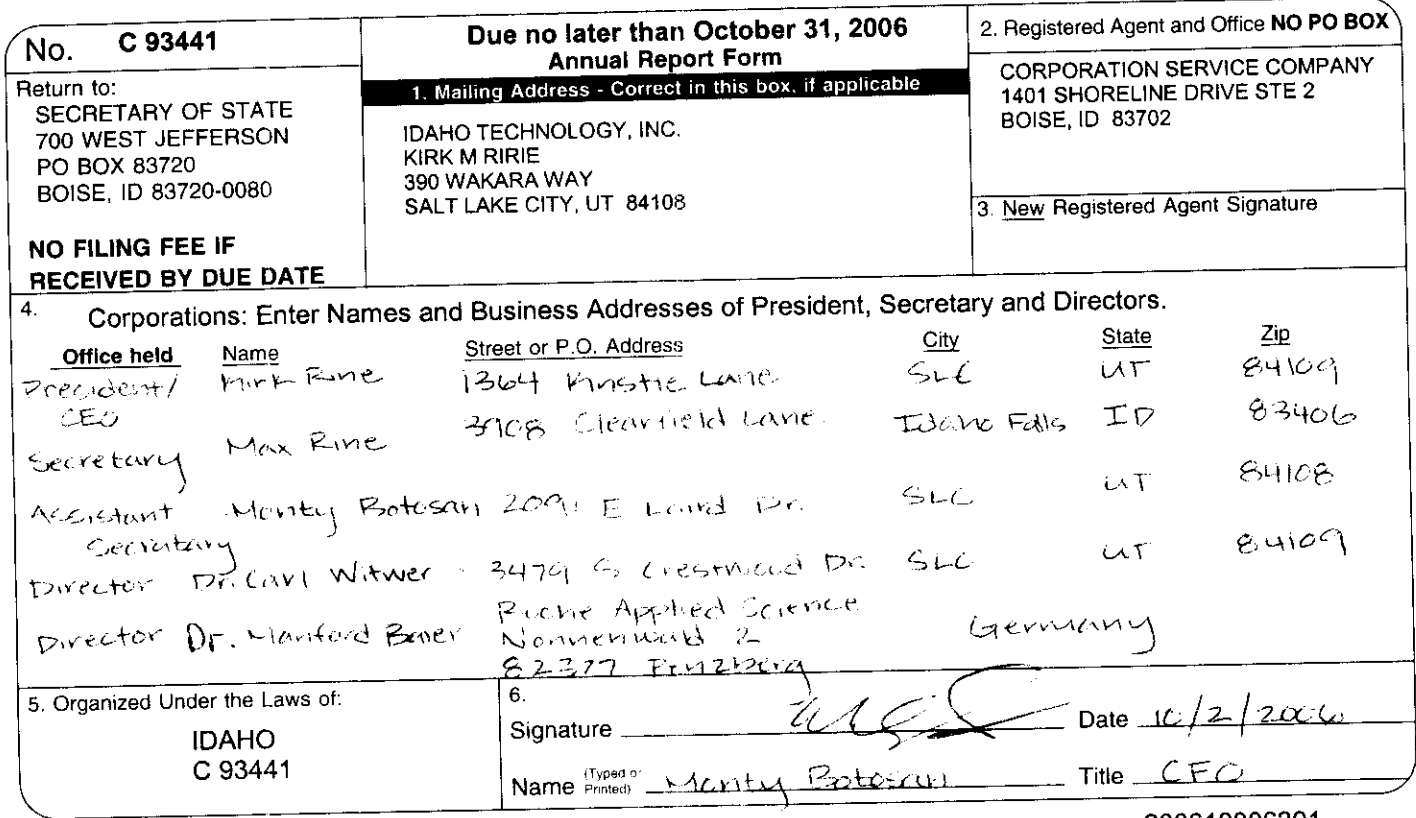 No. C 93441
Return to:
SECRETARY OF STATE
700 WEST JEFFERSON
PO BOX 83720
BOISE, ID 83720-0080
NO FILING FEE IF
RECEIVED BY DUE DATE
Due no later than October 31, 2006
Annual Report Form
1. Mailing Address - Correct in this box, if applicable
IDAHO TECHNOLOGY, INC.
KIRK M RIRIE
390 WAKARA WAY
SALT LAKE CITY, UT 84108
2. Registered Agent and Office NO PO BOX
CORPORATION SERVICE COMPANY
1401 SHORELINE DRIVE STE 2
BOISE, ID 83702
3. New Registered Agent Signature
4. Corporations: Enter Names and Business Addresses of President, Secretary and Directors.
Office held Name Street or P.O. Address City State Zip
President/ Kirk Ririe 1364 Kristie Lane SLC UT 84109
CEO
Secretary Max Ririe 3908 Clearfield Lane Idaho Falls ID 83406
Assistant Monty Botosan 2091 E Laird Dr. SLC UT 84108
Secretary
Director Dr. Carl Witwer 3479 S Crestwood Dr. SLC UT 84109
Roche Applied Science
Director Dr. Nonnenwald 2 Germany
82377 Penzberg
5. Organized Under the Laws of:
IDAHO
C 93441
6.
Signature Date 10/2/2006
Name (Typed or Printed) Monty Botosan Title CFO